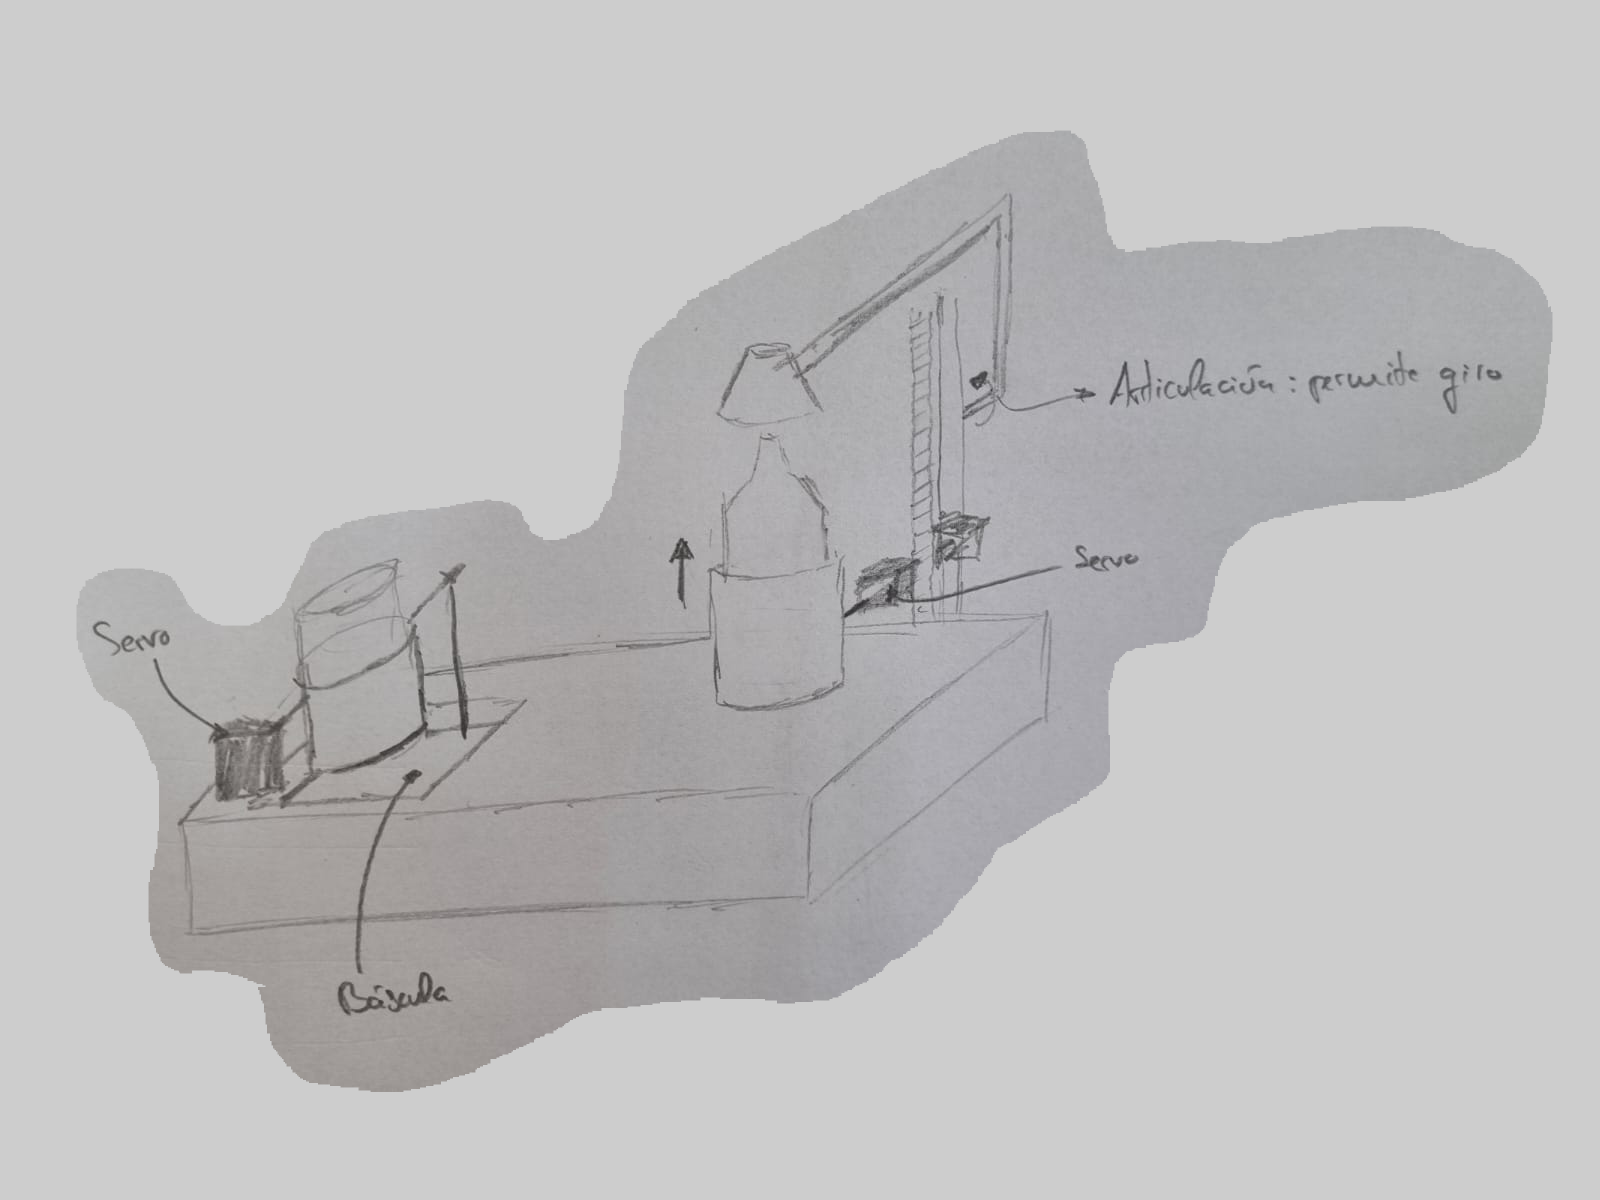 Articulación : permite giro
Servo
Servo
Báscula